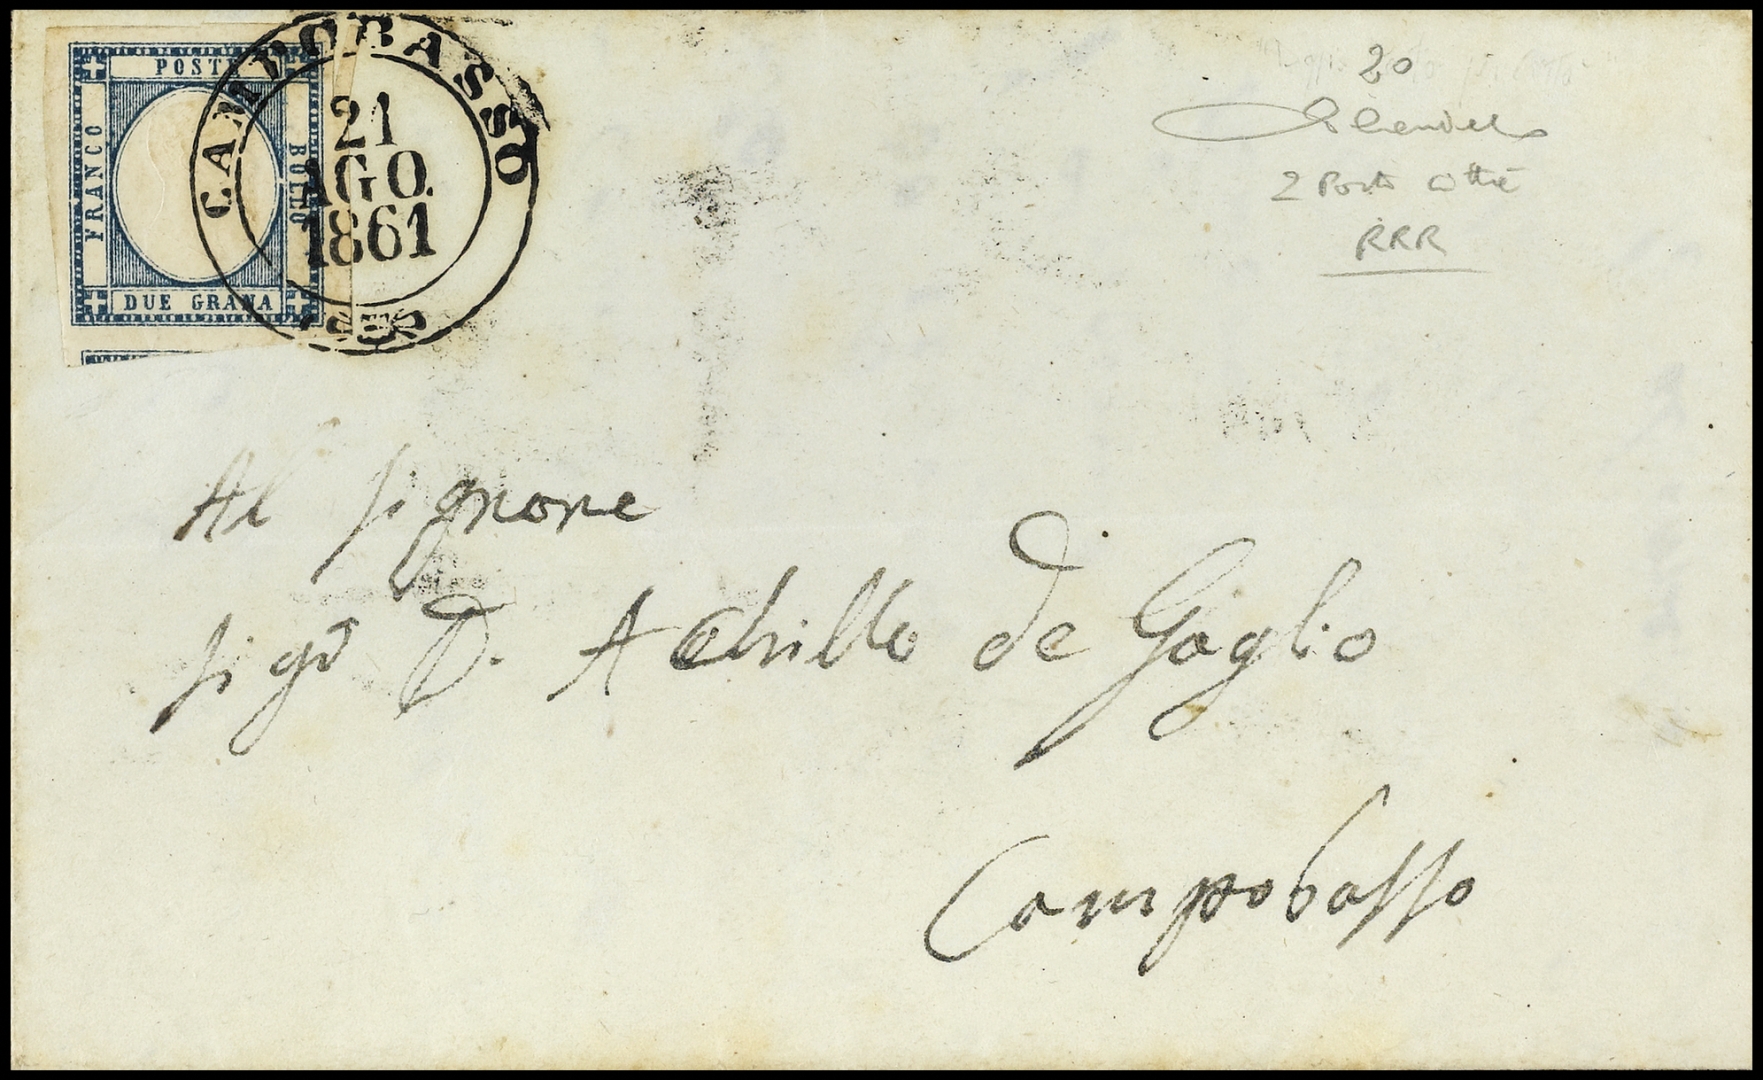 POSTE
FRANCO
BOLLO
DUE GRANA
CAMPOBASSO
21
AGO.
1861
20
2 Porti
RRR
Al Signore
Sigr D. Achille de Gaglio
Campobasso